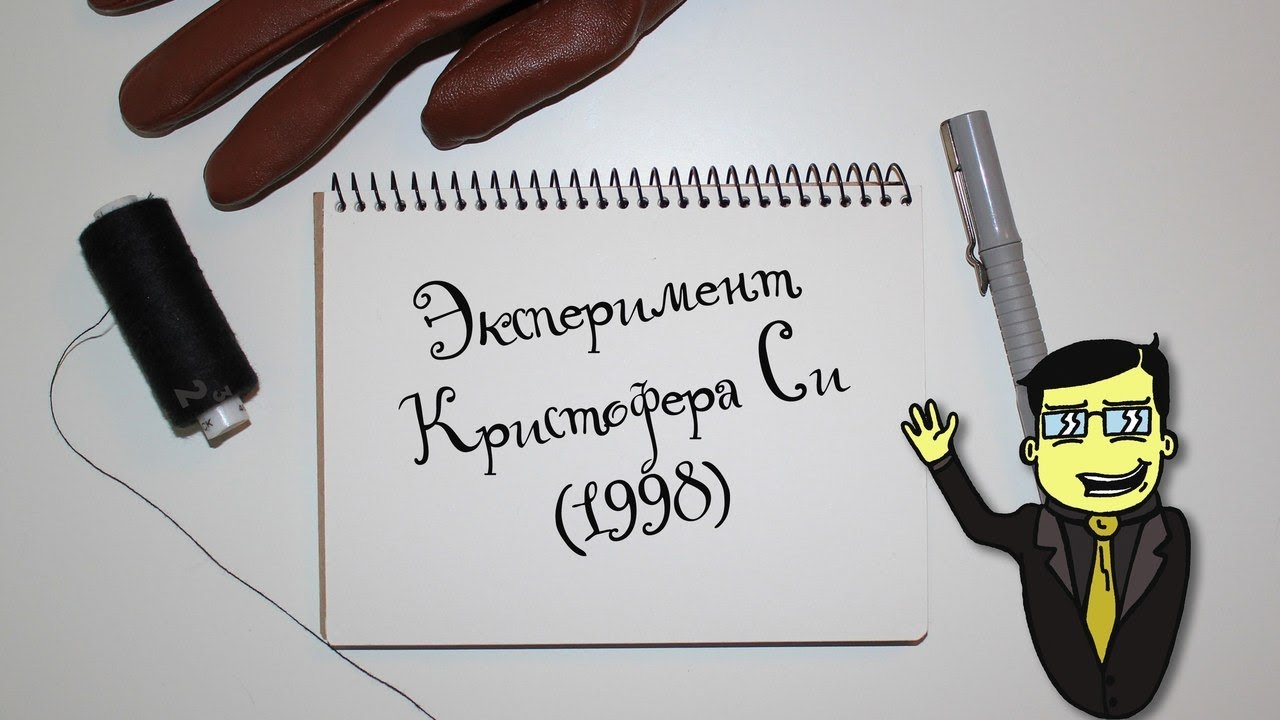 Эксперимент
Кристофера Си
(1998)
2
3